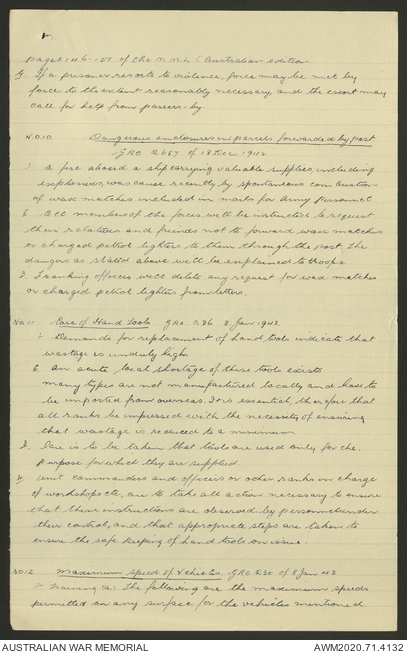 pages 146-151 of the M.M.L (Australian edition.
If a prisoner resorts to violence, force may be met by
force to the extent reasonably necessary, and the escort may
call for help from passers-by.
No.10. Dangerous enclosures in parcels forwarded by post
GRO 2687 of 18 Dec 1942
A fire aboard a ship carrying valuable supplies, including
explosives, was cause recently by spontaneous combustion
of wax matches included in mails for Army Personnel
All members of the forces will be instructed to request
their relatives and friends not to forward wax matches
or charged petrol lighters to them through the post. The
danger as stated above will be explained to troops
Franking officers will delete any request for wax matches
or charged petrol lighters from letters.
No.11 Care of Hand Tools GRO. 236 8 Jan 1943.
Demands for replacement of hand tools indicate that
wastage is unduly high.
An acute local shortage of these tools exists
many types are not manufactured locally and have to
be imported from overseas. It is essential, therefore that
all ranks be impressed with the necessity of ensuring
that wastage is reduced to a minimum
Care is to be taken that tools are used only for the
purpose for which they are supplied
Unit commanders and officers or other ranks in charge
of workshops etc, are to take all action necessary to ensure
that these instructions are observed by personnel under
their control, and that appropriate steps are taken to
ensure the safe keeping of hand tools on issue.
No.12 Maximum speed of Vehicles. GRO 230 of 8 Jan 43
Training (a) The following are the maximum speeds
permitted on any surface for the vehicles mentioned
AUSTRALIAN WAR MEMORIAL
AWM2020.71.4132